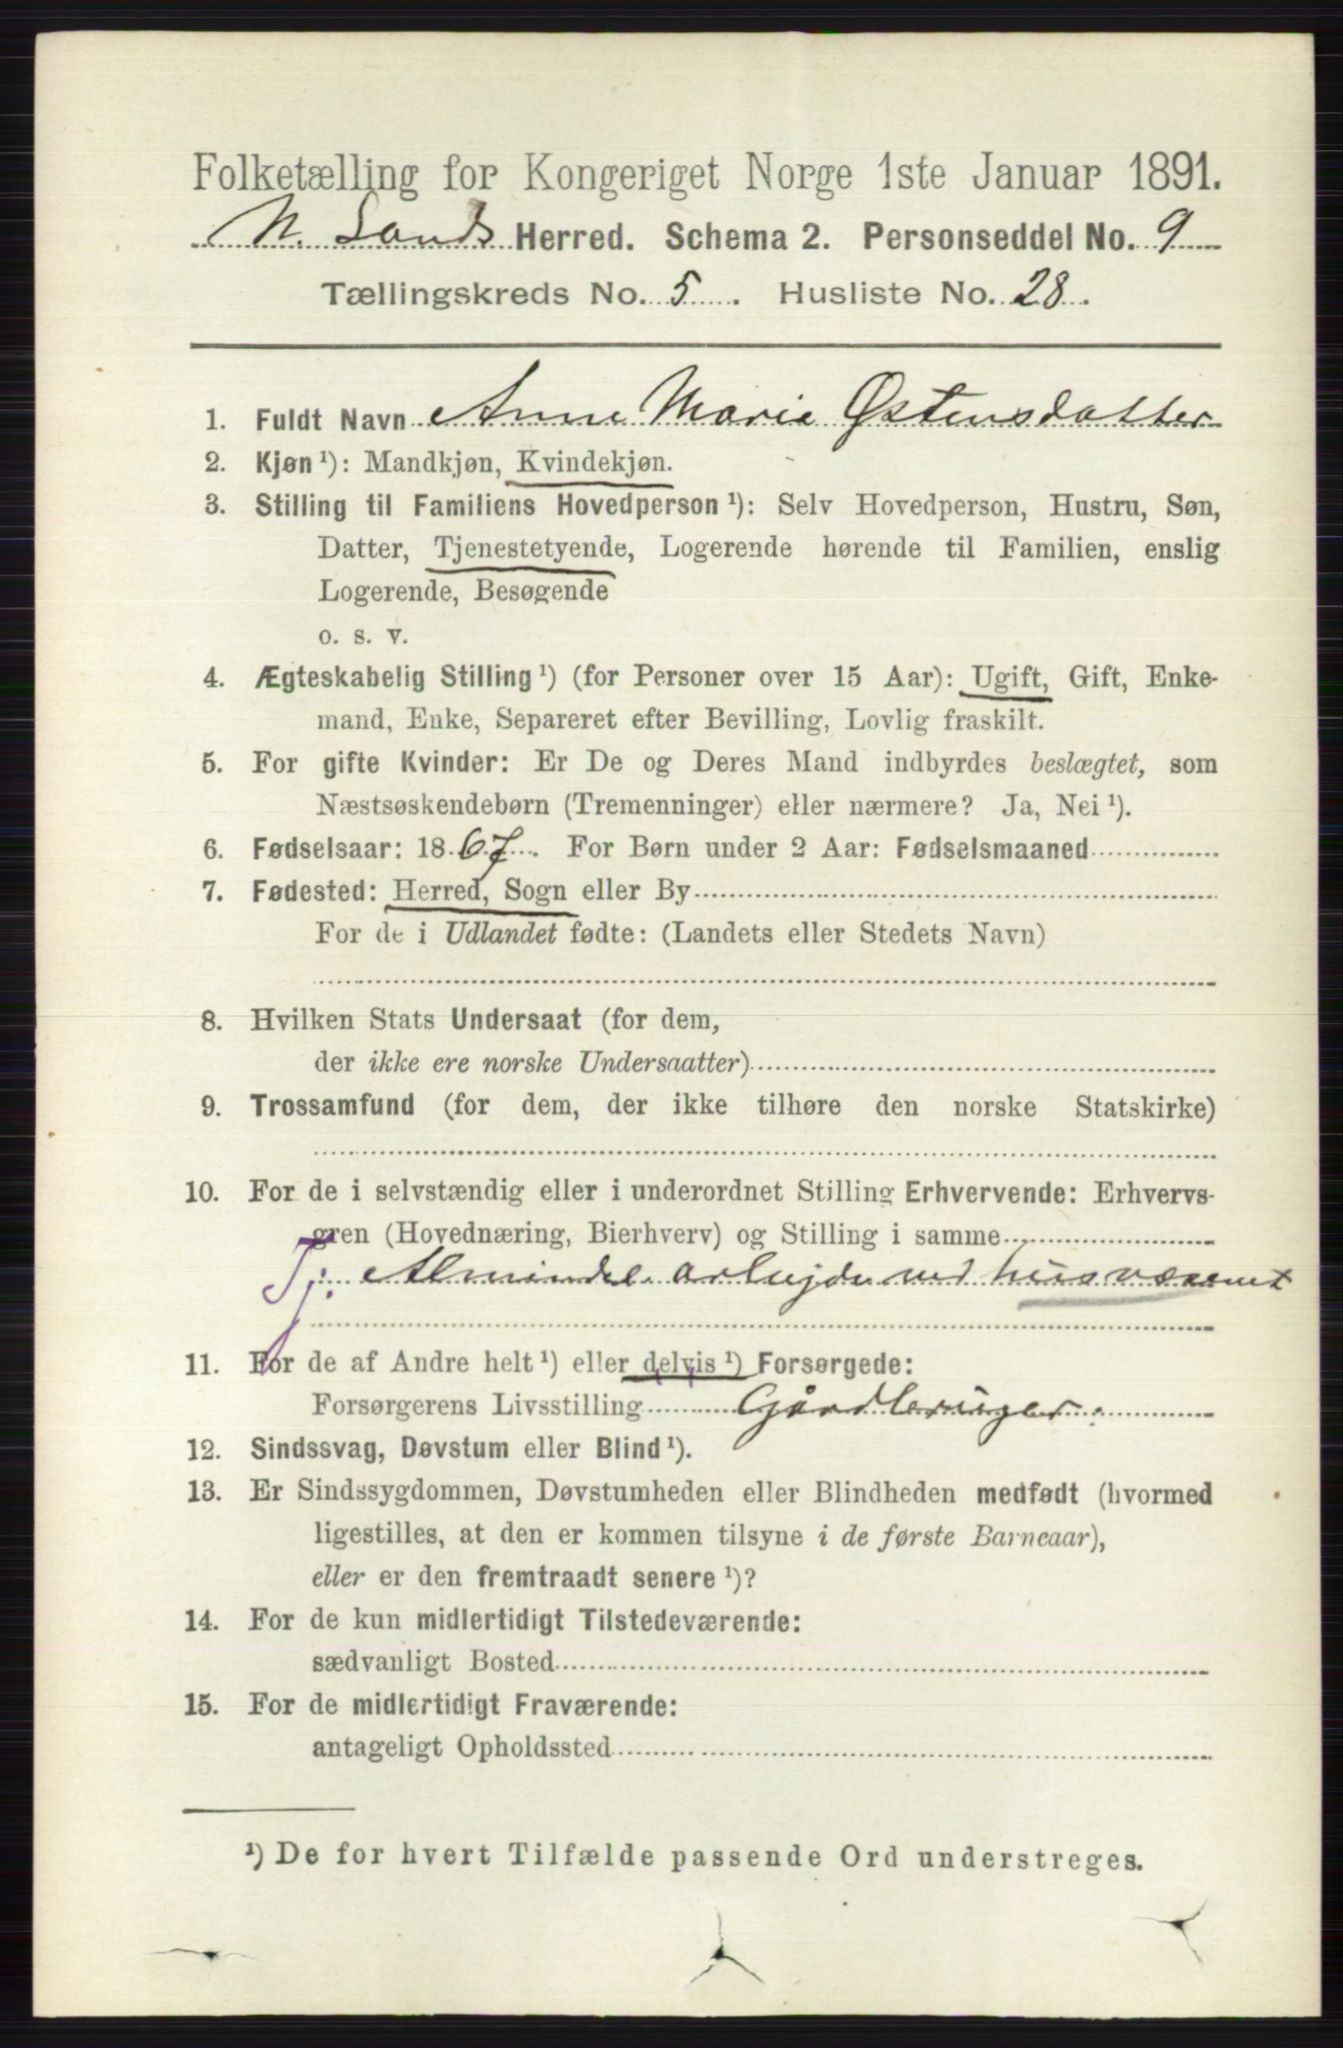 Folketælling for Kongeriget Norge 1ste Januar 1891.
N. Lands Herred. Schema 2. Personseddel No. 9
Tællingskreds No. 5. Husliste No. 28.
1. Fuldt Navn Anne Marie Østensdatter
2. Kjøn ¹): Mandkjøn, Kvindekjøn.
3. Stilling til Familiens Hovedperson ¹): Selv Hovedperson, Hustru, Søn,
Datter, Tjenestetyende, Logerende hørende til Familien, enslig
Logerende, Besøgende
o. s. v.
4. Ægteskabelig Stilling ¹) (for Personer over 15 Aar): Ugift, Gift, Enke-
mand, Enke, Separeret efter Bevilling, Lovlig fraskilt.
5. For gifte Kvinder: Er De og Deres Mand indbyrdes beslægtet, som
Næstsøskendebørn (Tremenninger) eller nærmere? Ja, Nei ¹).
6. Fødselsaar: 1867. For Børn under 2 Aar: Fødselsmaaned
7. Fødested: Herred, Sogn eller By
For de i Udlandet fødte: (Landets eller Stedets Navn)
8. Hvilken Stats Undersaat (for dem,
der ikke ere norske Undersaatter)
9. Trossamfund (for dem, der ikke tilhøre den norske Statskirke)
10. For de i selvstændig eller i underordnet Stilling Erhvervende: Erhvervs-
gren (Hovednæring, Bierhverv) og Stilling i samme
Tj: Almindel. arbejde ved husvæsenet
11. For de af Andre helt ¹) eller delvis ¹) Forsørgede:
Forsørgerens Livsstilling Gårdbruger.
12. Sindssvag, Døvstum eller Blind ¹).
13. Er Sindssygdommen, Døvstumheden eller Blindheden medfødt (hvormed
ligestilles, at den er kommen tilsyne i de første Barneaar),
eller er den fremtraadt senere ¹)?
14. For de kun midlertidigt Tilstedeværende:
sædvanligt Bosted
15. For de midlertidigt Fraværende:
antageligt Opholdssted
¹) De for hvert Tilfælde passende Ord understreges.